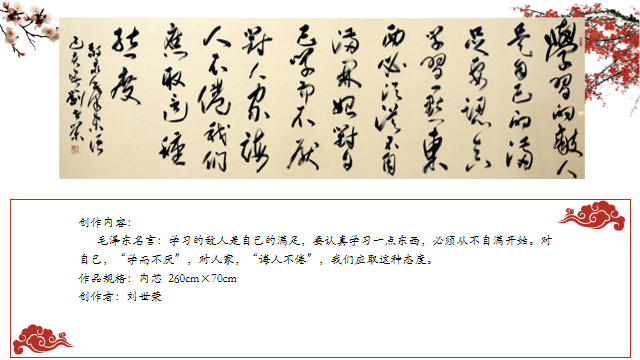 學習的敵人
是自己的滿
足要認真
學習一點東
西必须從不自
滿開始對自
己學而不厭
對人家誨
人不倦我們
應取這種
態度
敬录毛泽东语
己亥 劉世榮
创作内容：
毛泽东名言：学习的敌人是自己的满足，要认真学习一点东西，必须从不自满开始。对
自己，“学而不厌”，对人家，“诲人不倦”，我们应取这种态度。
作品规格：内芯 260cm×70cm
创作者：刘世荣